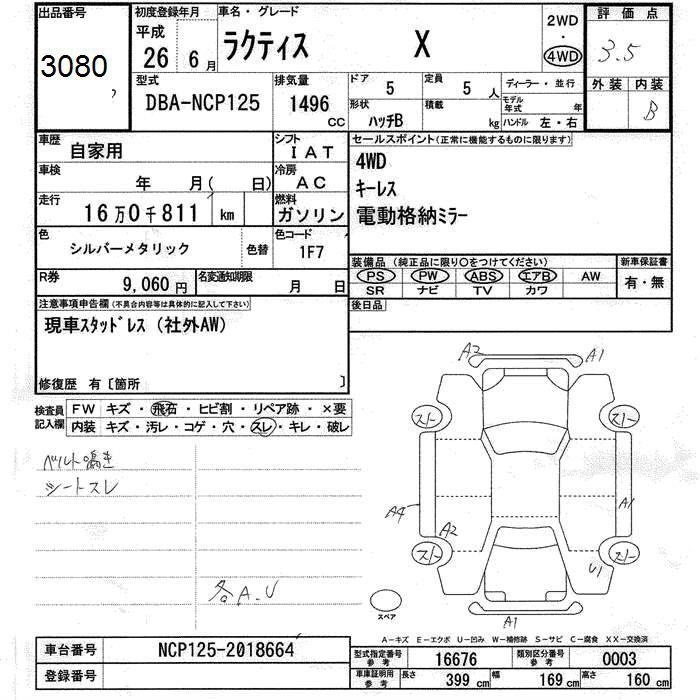 出品番号
3080
初度登録年月
平成
26 6月
車名・グレード
ラクティス X
2WD
・
4WD
評価点
3.5
外装 内装
B
型式
DBA-NCP125
排気量
1496
CC
ドア
5
定員
5人
形状
ハッチB
積載
kg
ディーラー・並行
モデル年式 年
ハンドル 左・右
車歴
自家用
シフト
IAT
車検
年 月( 日)
冷房
AC
走行
16万0千811 km
燃料
ガソリン
色
シルバーメタリック
色替
色コード
1F7
R券
9,060円
名変通知期限
月 日
セールスポイント(正常に機能するものに限ります)
4WD
キーレス
電動格納ミラー
装備品(純正品に限り○をつけてください)
PS PW ABS エアB AW
SR ナビ TV カワ
新車保証書
有・無
後日品
注意事項申告欄(不具合内容等は具体的に記入して下さい)
現車スタッドレス(社外AW)
修復歴 有〔箇所 〕
検査員
記入欄
FW キズ・飛石・ヒビ割・リペア跡・×要
内装 キズ・汚レ・コゲ・穴・スレ・キレ・破レ
ベルト鳴き
シートスレ
各A.U
A2
A1
スト
スト
A4
A1
A2
スト
スト
U1
スペア
A1
A－キズ E－エクボ U－凹み W－補修跡 S－サビ C－腐食 XX－交換済
車台番号
NCP125-2018664
登録番号
型式指定番号
参考
16676
類別区分番号
参考
0003
車庫証明用
参考
長さ 399 cm 幅 169 cm 高さ 160 cm